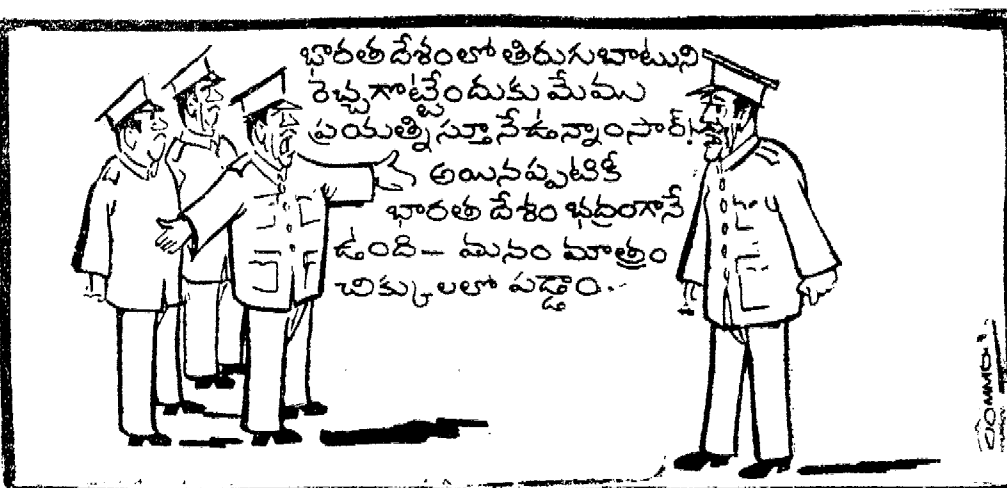 భారత దేశంలో తిరుగుబాటుని
రెచ్చగొట్టేందుకు మేము
ప్రయత్నిస్తూనే ఉన్నాంసార్!
అయినప్పటికీ
భారత దేశం భద్రంగానే
ఉంది - మనం మాత్రం
చిక్కులలో పడ్డాం..